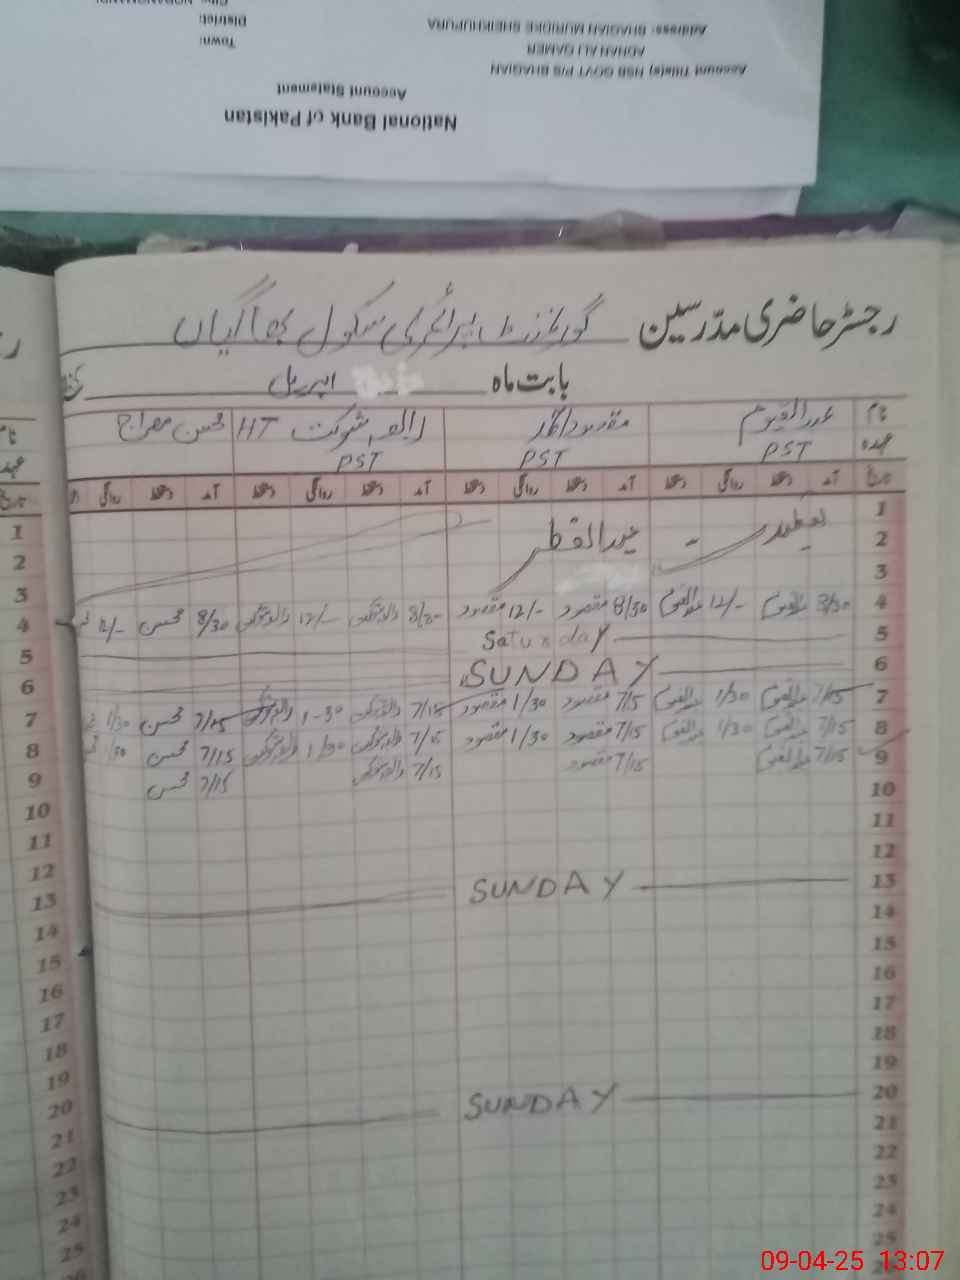 National Bank of Pakistan
Account Statement
Account Title(s) NSB GOVT P/S BHAGIAN
ADNAN ALI QAMER
Address: BHAGIAN MURIDKE SHEIKHUPURA
Town:
District:
رجسٹر حاضری مدرسین گورنمنٹ پرائمری سکول بھاگیاں
بابت ماہ اپریل
نام عبدالقیوم مقصود احمد رابعہ شوکت HT محسن معراج
عہدہ PST PST PST
تاریخ آمد دستخط روانگی دستخط آمد دستخط روانگی دستخط آمد دستخط روانگی دستخط آمد دستخط روانگی
1 1
2 تعطیلات عیدالفطر 2
3 3
4 8/30 عبدالقیوم 12/- عبدالقیوم 8/30 مقصود 12/- مقصود 8/30 12/- 8/30 محسن 12/- 4
5 Saturday 5
6 SUNDAY 6
7 7/15 عبدالقیوم 1/30 عبدالقیوم 7/15 مقصود 1/30 مقصود 7/15 1-30 7/15 محسن 1/30 7
8 7/15 عبدالقیوم 1/30 عبدالقیوم 7/15 مقصود 1/30 مقصود 7/15 1/30 7/15 محسن 1/30 8
9 7/15 عبدالقیوم 7/15 مقصود 7/15 7/15 محسن 9
10 10
11 11
12 12
13 SUNDAY 13
14 14
15 15
16 16
17 17
18 18
19 19
20 SUNDAY 20
21 21
22 22
23 23
24 24
25 25
09-04-25 13:07